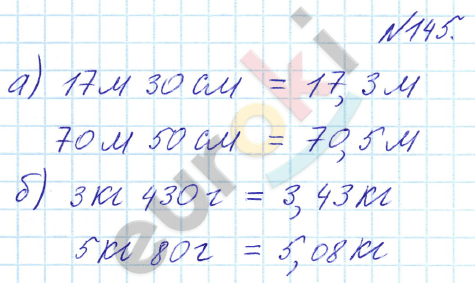 №145.
а) 17м 30см = 17,3м
70м 50см = 70,5м
б) 3кг 430г = 3,43кг
5кг 80г = 5,08кг
euroki